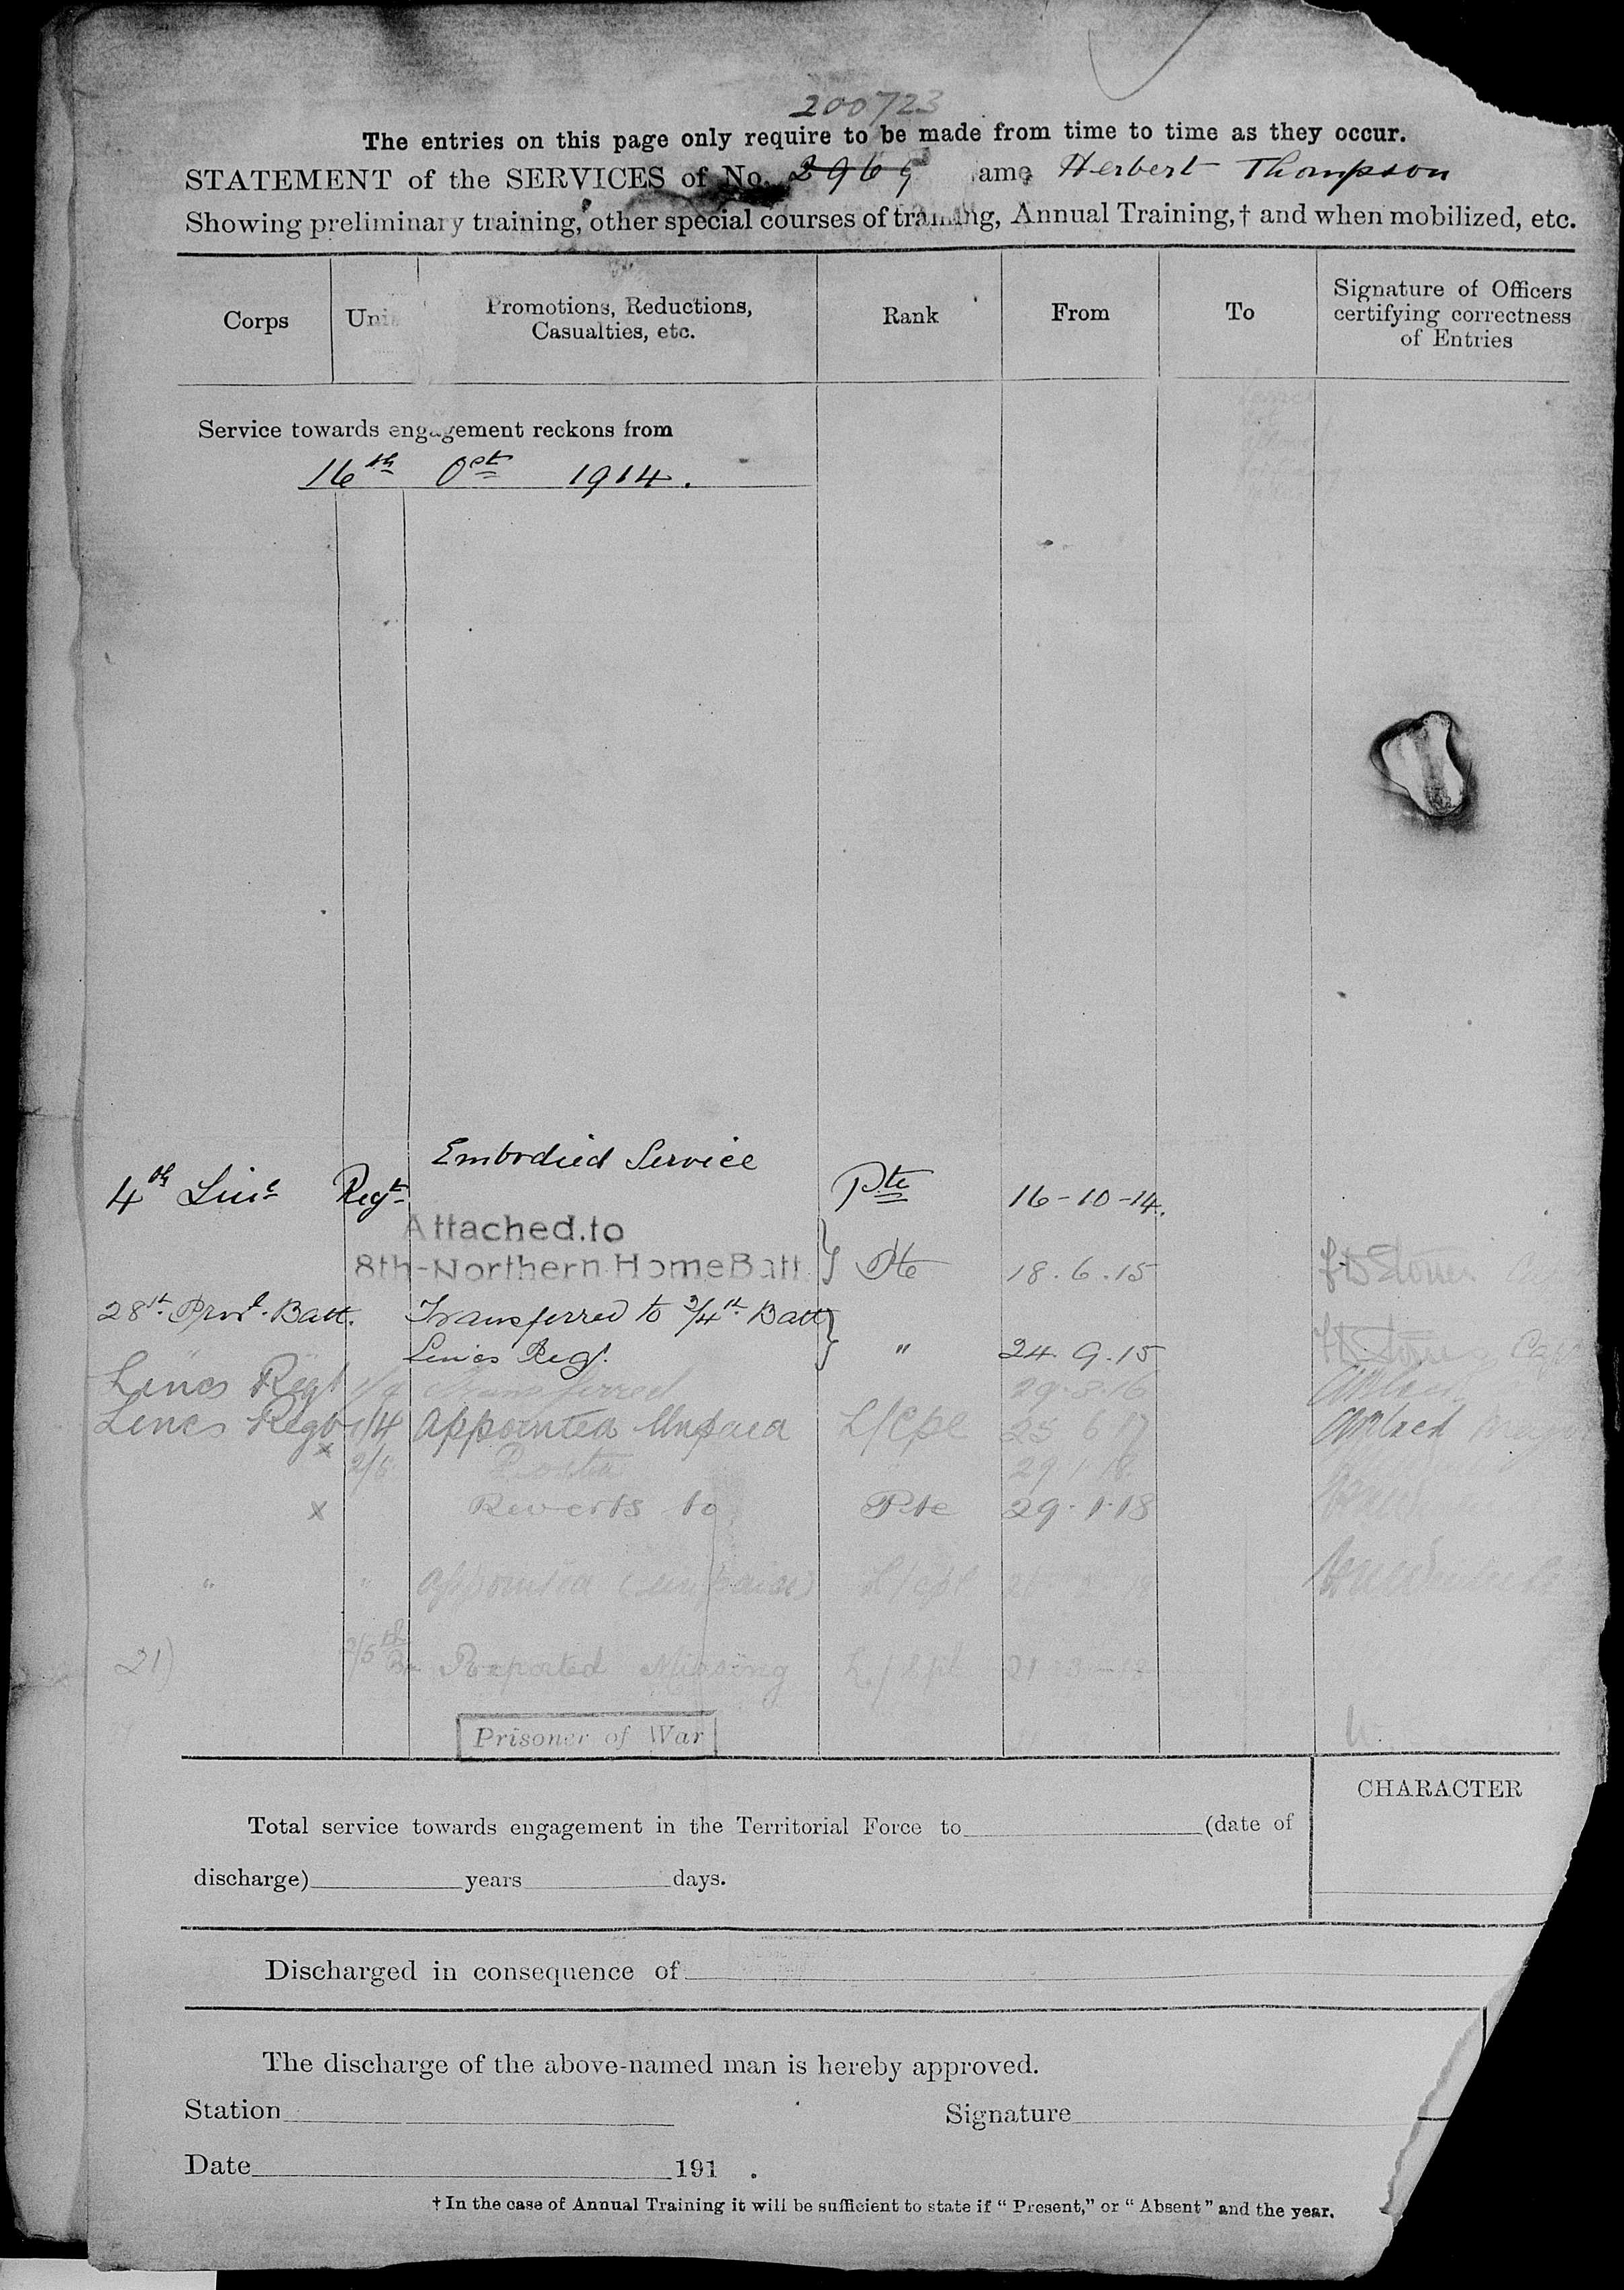 200723
The entries on this page only require to be made from time to time as they occur.
STATEMENT of the SERVICES of No. 2969 ame Herbert Thompson
Showing preliminary training, other special courses of training, Annual Training,† and when mobilized, etc.
Corps Uni Promotions, Reductions, Casualties, etc. Rank From To Signature of Officers certifying correctness of Entries
Service towards engagement reckons from
16th Oct 1914.
Embodied Service
4th Linc Regt Pte 16-10-14.
Attached.to
8th-Northern Home Batt } Pte 18.6.15
28th Provl. Batt. Transferred to 3/4th Batt }
Lincs Reg. " 24.9.15 Capt
Lincs Regt Transferred 29.3.16
Lincs Regt 1/4 Appointed Unpaid L/Cpl 25 6 17 Major
x 2/5 Posted 29.1.18.
x Reverts to Pte 29.1.18
" " Appointed (unpaid) L/cpl
21) 2/5th Bn Reported Missing L/Cpl 21-3-18
Prisoner of War
CHARACTER
Total service towards engagement in the Territorial Force to (date of
discharge) years days.
Discharged in consequence of
The discharge of the above-named man is hereby approved.
Station Signature
Date 191 .
† In the case of Annual Training it will be sufficient to state if “ Present,” or “ Absent ” and the year.